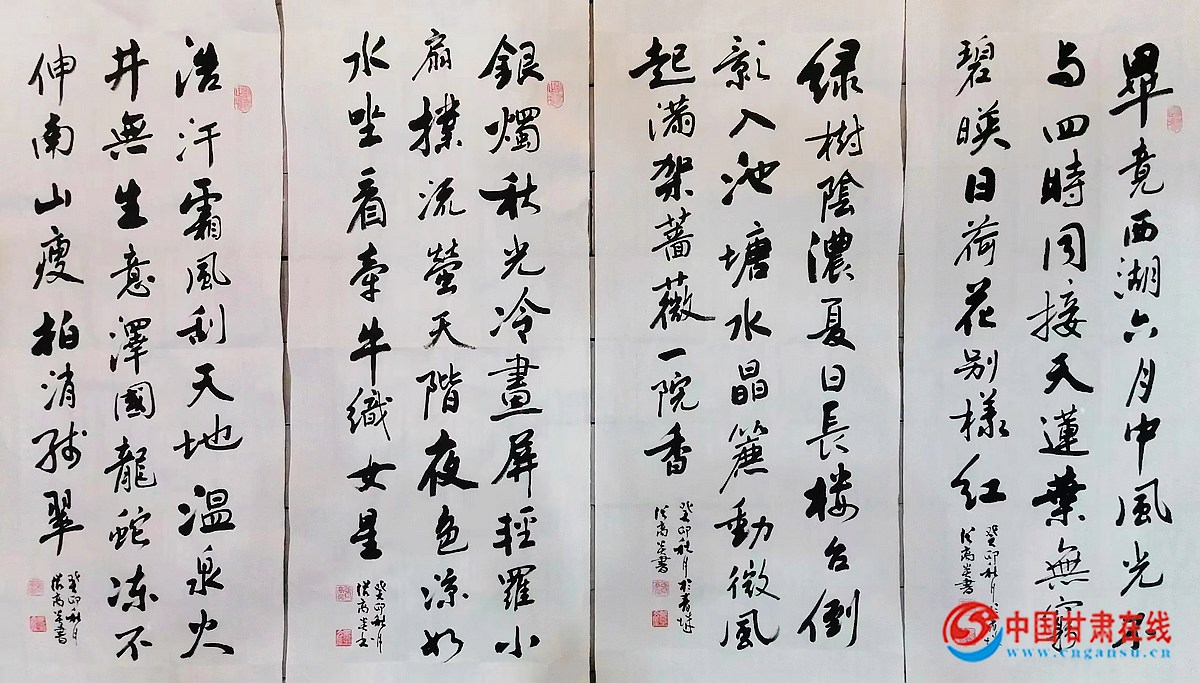 畢竟西湖六月中風光不
与四時同接天蓮葉無窮
碧映日荷花别樣红
癸卯秋月
绿樹陰濃夏日長楼台倒
影入池塘水晶簾動微風
起滿架薔薇一院香
癸卯秋月於青城
銀燭秋光冷畫屏輕羅小
扇撲流螢天階夜色凉如
水坐看牽牛織女星
癸卯秋月
浩汗霜風刮天地温泉火
井無生意澤國龍蛇凍不
伸南山瘦柏消残翠
癸卯秋月
中国甘肃在线
www.cngansu.cn